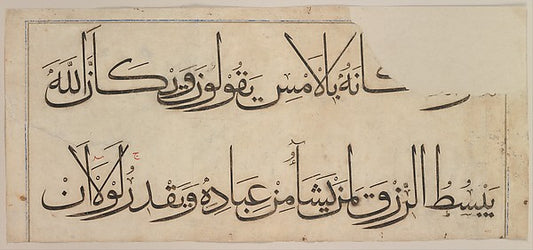 مَكَانَهُ بِالْاَمْسِ يَقُولُونَ وَيْكَاَنَّ اللّٰهَ
يَبْسُطُ الرِّزْقَ لِمَنْ يَشَآءُ مِنْ عِبَادِهِ وَيَقْدِرُ لَوْلَآ اَنْ